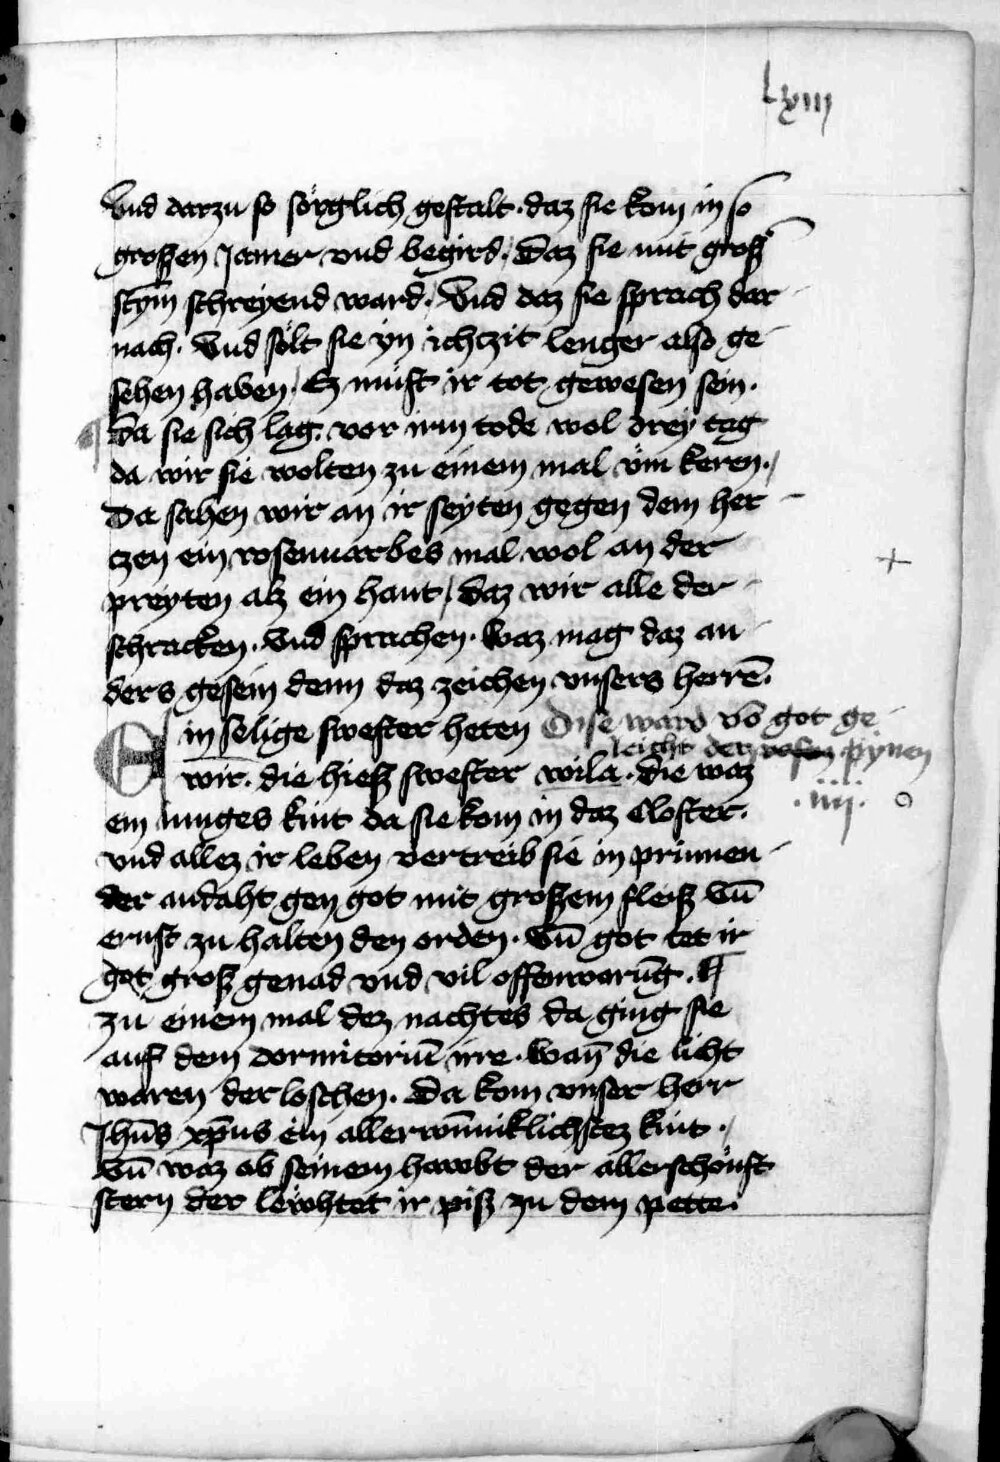 lxiij
Vnd darzu so sörglich gestalt · daz sie kom in so
groszen Jamer vnd begird · Daz sie mit grosz
stym schreyend ward · Vnd daz sie sprach dar
nach · Vnd sölt sie yn ichtzit lenger also ge
sehen haben / Ez müst ir tot gewesen sein ·
Da sie sich lag · vor irm tode wol drey tag
da wir sie wolten zu einem mal vm keren ·
Da sahen wir an ir seyten gegen dem her
czen ein rosenuarbes mal wol an der
preyten alz ein hant / Daz wir alle der
schracken · Vnd sprachen · Waz mag daz an
ders gesein denn daz zeichen vnsers herrē ·
Ein selige swester heten
Dise ward vō got ge
leicht der rosen pynen
wir · die hiesz swester wila · die waz
· iiij ·
ein iunges kint da sie kom in daz Closter ·
vnd allez ir leben vertreib sie in prinnen
der andaht gen got mit groszem fleisz Vn̄
ernst zu halten den orden · Vn̄ got tet ir
got grosz genad vnd vil offenwarūg ·
zu einem mal dez nachtes da ging sie
auf dem dormitoriū irre · Wan̄ die licht
waren der loschen · Da kom vnser herr
Jhūs xp̄us ein allerwūniklichstez kint ·
Vn̄ waz ob seinem hawbt der allerschönst
stern der lewhtet ir pisz zu dem pette ·